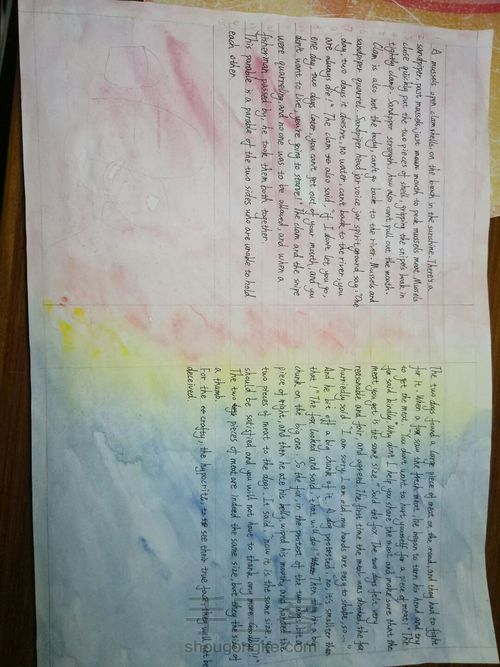 A mussels open clam shells on the beach in the sunshine. There's a
sandpiper, past mussels, just mawn mouth to peck mussels meat. Mussels
close quickly put the two pieces of shell, gripping the snipe's beak in
tightly clamp. Sandpiper strength, how also can't pull out the mouth.
Clam is also not the body, can't go back to the river. Mussels and
sandpiper quarrel. Sandpiper head jar voice jar spirit ground say: "One
day, two days it doesn't, no water, can't back to the river, you
are always dry!" The clam also said, "if I don't let you go,
one day, two days later, you can't get out of your mouth, and you
don't want to live, you're going to starve!" The clam and the snipe
were quarreling and no one was to be allowed, and when a
fisherman passed by, he took them both together.
This parable is a parable of the two sides who are unable to hold
each other.
The two dogs found a large piece of meat on the road, and they had to fight
for it. When a fox saw the fresh meat, he began to turn his head and try
to get the meat. "You don't want to hurt yourself for a piece of meat! I'm
for such kindly. Why don't I help you share the meat and make sure that the
meat you get is the same size." Said the fox. The two dogs felt very
reasonable and fair, and agreed. The first time the meat was divided, the fox
hurriedly said "I am sorry, I am old, my hands are easy to shake, so..."
And he bit off a big chunk of it. A dog protested, no, it's smaller than
that!" The fox looked and said, "that will do!" Then took in a big
chunk on the big one. So the fox, in the protest of the two dogs, bit a
piece of night, and then he ate his belly, wiped his mouth, and handed the
two pieces of meat to the dogs. Is said, "now it is the same size, you
should be satisfied, and you will not have to thank me. Goodbye!"
The two pieces of meat are indeed the same size, but they the size of
a thumb.
For the crafty, the hypocrites, to see their true face, they will not be
deceived.
shougongke.com